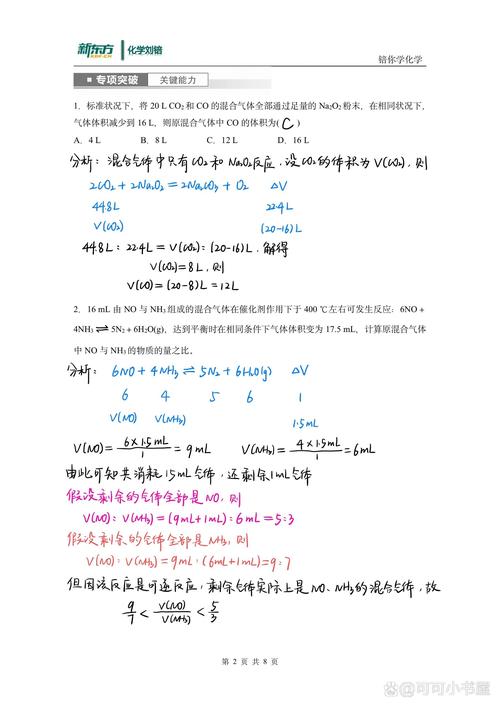 新东方 XDF.CN 化学刘锴 锴你学化学
专项突破 关键能力
1. 标准状况下，将 20 L CO2 和 CO 的混合气体全部通过足量的 Na2O2 粉末，在相同状况下，
气体体积减少到 16 L，则原混合气体中 CO 的体积为( C )
A. 4 L B. 8 L C. 12 L D. 16 L
分析：混合气体中只有CO2和Na2O2反应，设CO2的体积为V(CO2)，则
2CO2 + 2Na2O2 = 2Na2CO3 + O2 ΔV
44.8L 22.4L
V(CO2) (20-16)L
44.8L : 22.4L = V(CO2) : (20-16)L，解得
V(CO2)=8L，则
V(CO)=(20-8)L=12L
2. 16 mL 由 NO 与 NH3 组成的混合气体在催化剂作用下于 400 ℃左右可发生反应：6NO +
4NH3 ⇌ 5N2 + 6H2O(g)，达到平衡时在相同条件下气体体积变为 17.5 mL，计算原混合气体
中 NO 与 NH3 的物质的量之比。
分析： 6NO + 4NH3 ⇌ 5N2 + 6H2O(g) ΔV
6 4 5 6 1
V(NO) V(NH3) 1.5mL
V(NO)= 6×1.5mL/1 = 9mL V(NH3)= 4×1.5mL/1 = 6mL
由此可知共消耗15mL气体，还剩余1mL气体
假设剩余的气体全部是NO，则
V(NO) : V(NH3) = (9mL+1mL) : 6mL = 5:3
假设剩余的气体全部是NH3，则
V(NO) : V(NH3) = 9mL : (6mL+1mL) = 9:7
但因该反应是可逆反应，剩余气体实际上是NO、NH3的混合气体，故
9/7 < V(NO)/V(NH3) < 5/3
第 2 页 共 8 页
@可可小书屋